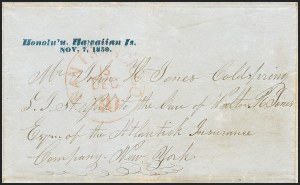 Honolulu. Hawaiian Is.
NOV. 7, 1850.
Mr John H Jones Cold Spring
L. I. to the care of Walter R Jones
Esqr of the Atlantick Insurance
Company New York